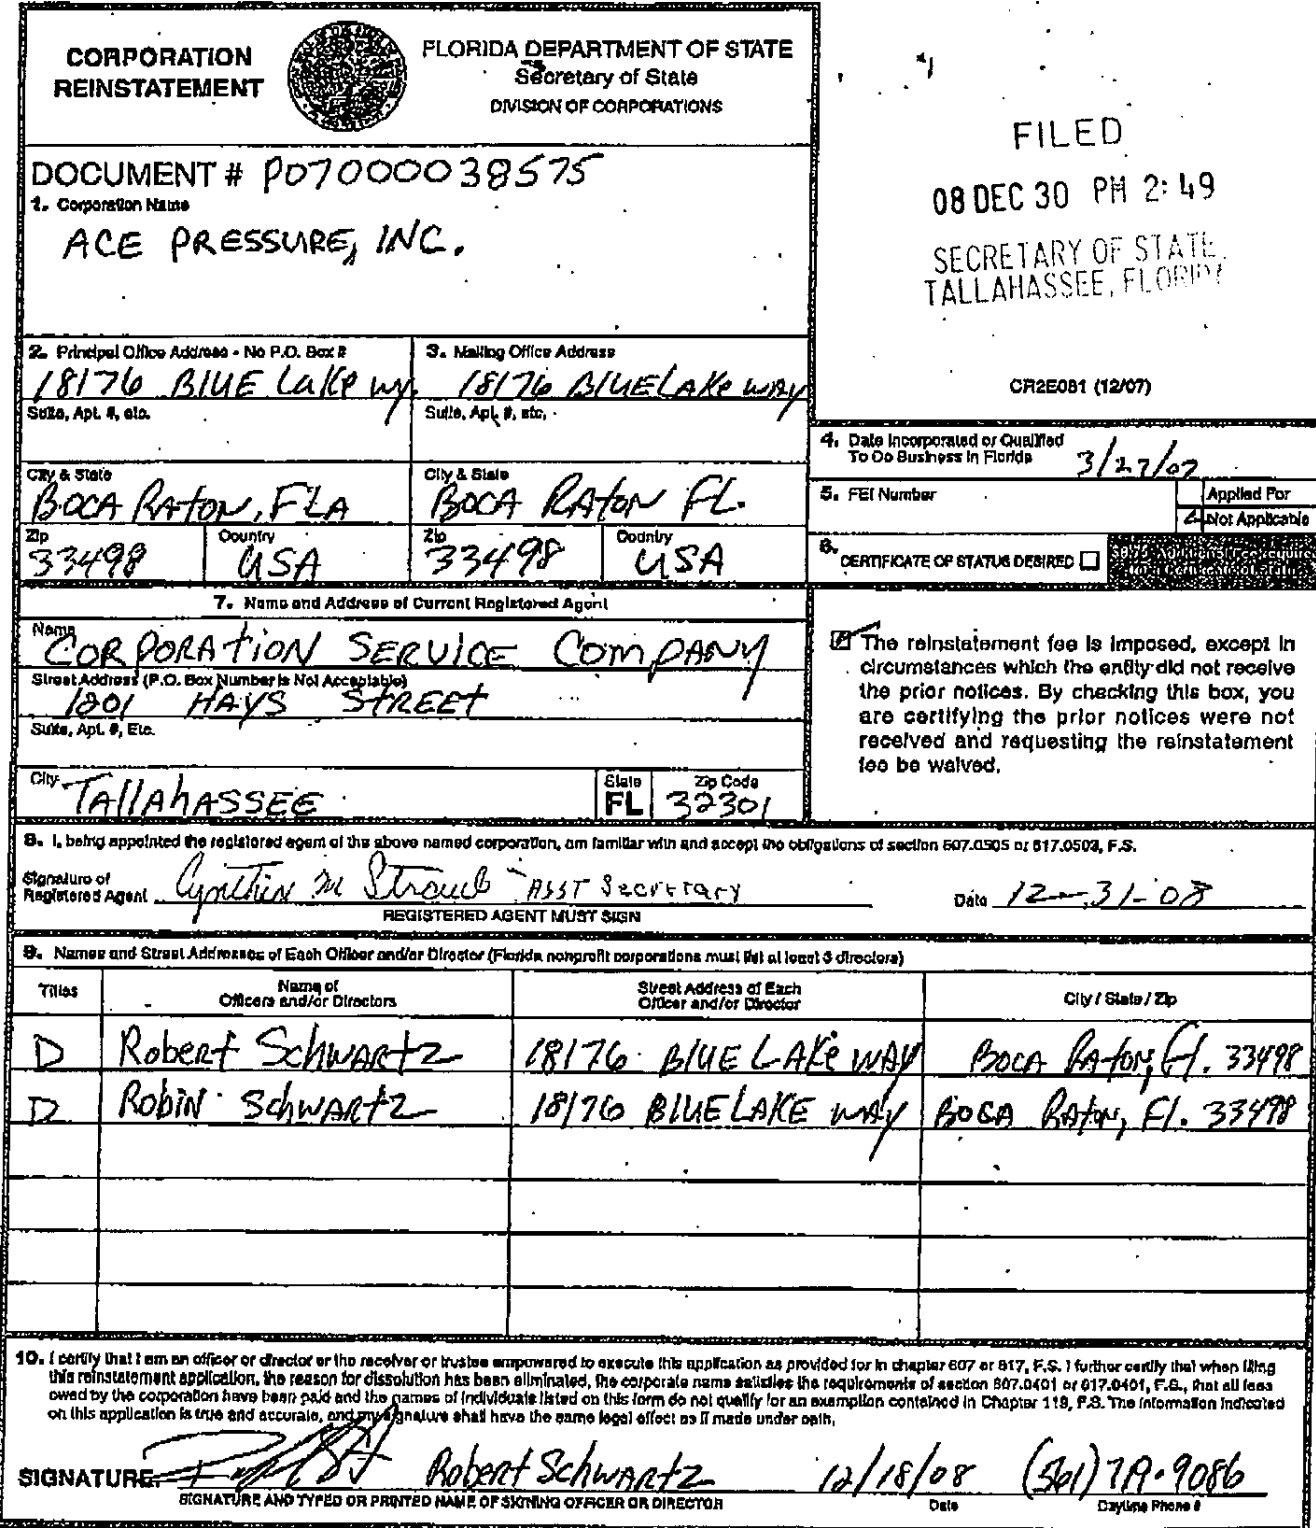 CORPORATION
REINSTATEMENT
FLORIDA DEPARTMENT OF STATE
Secretary of State
DIVISION OF CORPORATIONS
FILED
08 DEC 30 PM 2:49
SECRETARY OF STATE
TALLAHASSEE, FLORIDA
DOCUMENT # P07000038575
1. Corporation Name
ACE PRESSURE, INC.
2. Principal Office Address - No P.O. Box #
18176 BLUE Lake wy.
Suite, Apt. #, etc.
City & State
BOCA RATON, FLA
Zip
33498
Country
USA
3. Mailing Office Address
18176 BLUE LAKE WAY
Suite, Apt. #, etc.
City & State
BOCA RATON FL.
Zip
33498
Country
USA
CR2E081 (12/07)
4. Date Incorporated or Qualified
To Do Business in Florida
3/27/07
5. FEI Number
Applied For
Not Applicable
6. CERTIFICATE OF STATUS DESIRED
7. Name and Address of Current Registered Agent
Name
CORPORATION SERVICE COMPANY
Street Address (P.O. Box Number is Not Acceptable)
1201 HAYS STREET
Suite, Apt. #, Etc.
City
TALLAHASSEE
State
FL
Zip Code
32301
The reinstatement fee is imposed, except in
circumstances which the entity did not receive
the prior notices. By checking this box, you
are certifying the prior notices were not
received and requesting the reinstatement
fee be waived.
8. I, being appointed the registered agent of the above named corporation, am familiar with and accept the obligations of section 607.0505 or 617.0503, F.S.
Signature of
Registered Agent Cynthia M Straub ASST Secretary
Date 12-31-08
REGISTERED AGENT MUST SIGN
9. Names and Street Addresses of Each Officer and/or Director (Florida nonprofit corporations must list at least 3 directors)
Titles
Name of
Officers and/or Directors
Street Address of Each
Officer and/or Director
City / State / Zip
D Robert Schwartz 18176 BLUE LAKE WAY BOCA RATON, Fl. 33498
D Robin Schwartz 18176 BLUE LAKE WAY BOCA RATON, Fl. 33498
10. I certify that I am an officer or director or the receiver or trustee empowered to execute this application as provided for in chapter 607 or 617, F.S. I further certify that when filing
this reinstatement application, the reason for dissolution has been eliminated, the corporate name satisfies the requirements of section 607.0401 or 617.0401, F.S., that all fees
owed by the corporation have been paid and the names of individuals listed on this form do not qualify for an exemption contained in Chapter 119, F.S. The information indicated
on this application is true and accurate, and my signature shall have the same legal effect as if made under oath.
SIGNATURE: Robert Schwartz 12/18/08 (561) 9086
SIGNATURE AND TYPED OR PRINTED NAME OF SIGNING OFFICER OR DIRECTOR
Date
Daytime Phone #